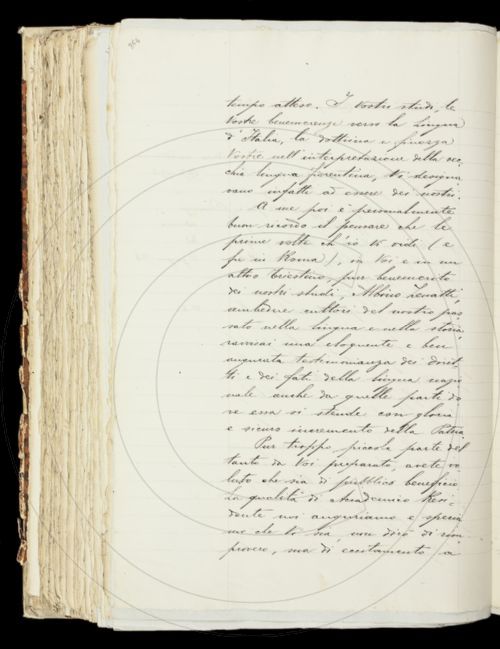 tempo atteso. I Vostri studi, le
Vostre benemerenze verso la Lingua
d'Italia, la dottrina e finezza
Vostre nell'interpretazione della vec
chia lingua fiorentina, Vi designa
vano infatti ad essere dei nostri.
A me poi è personalmente
buon ricordo il pensare che le
prime volte ch'io Vi vidi (e
fu in Roma), in Voi e in un
altro triestino, pur benemerito
dei nostri studi, Albino Zenatti,
ambedue cultori del nostro pas
sato nella lingua e nella storia,
ravvisai una eloquente e ben
augurata testimonianza dei dirit
ti e dei fati della lingua nazio
nale anche da quelle parti do
ve essa si stende con gloria
e sicuro incremento della Patria.
Pur troppo piccola parte del
tanto da Voi preparato, avete vo
luto che sia di pubblico beneficio.
La qualità di Accademico Resi-
dente noi auguriamo e speria
mo che Vi sia, non dirò di rim
provero, ma di eccitamento a